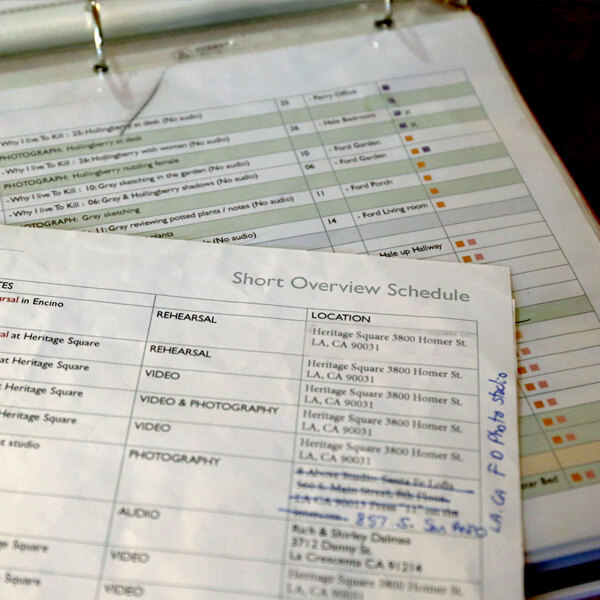 - Why I Live To Kill : 25: Hollingberry at desk (No audio)
25
- Perry Office
PHOTOGRAPH: Hollingberry at desk
26
- Hale Bedroom
- Why I Live To Kill : 26: Hollingberry with women (No audio)
10
- Ford Garden
PHOTOGRAPH: Hollingberry nuzzling female
06
- Ford Garden
- Why I Live To Kill : 10: Gray sketching in the garden (No audio)
- Why I Live To Kill : 06: Gray & Hollingberry shadows (No audio)
11
- Ford Porch
PHOTOGRAPH: Gray sketching
: 11: Gray reviewing potted plants / notes (No audio)
14
- Ford Living room
plants
(No audio)
Hale up Hallway
Short Overview Schedule
TES
LOCATION
arsal in Encino
REHEARSAL
Heritage Square 3800 Homer St.
LA, CA 90031
al at Heritage Square
REHEARSAL
Heritage Square 3800 Homer St.
LA, CA 90031
at Heritage Square
VIDEO
Heritage Square 3800 Homer St.
LA, CA 90031
at Heritage Square
VIDEO & PHOTOGRAPHY
Heritage Square 3800 Homer St.
LA, CA 90031
Heritage Square
VIDEO
Heritage Square 3800 Homer St.
LA, CA 90031
t studio
PHOTOGRAPHY
Above Studio Santa Fe Lofts
560 S. Main Street, 8th Floor
LA CA 90013 Press "11" on the
intercom
857 S. San Pedro
LA. CA F O Photo Studio
AUDIO
Ruth & Shirley Dalmes
3712 Danny St.
La Crescenta CA 91214
Square
VIDEO
Heritage Square 3800 Homer St.
LA, CA 90031
Square
VIDEO
Heritage Square 3800 Homer St.
Bed